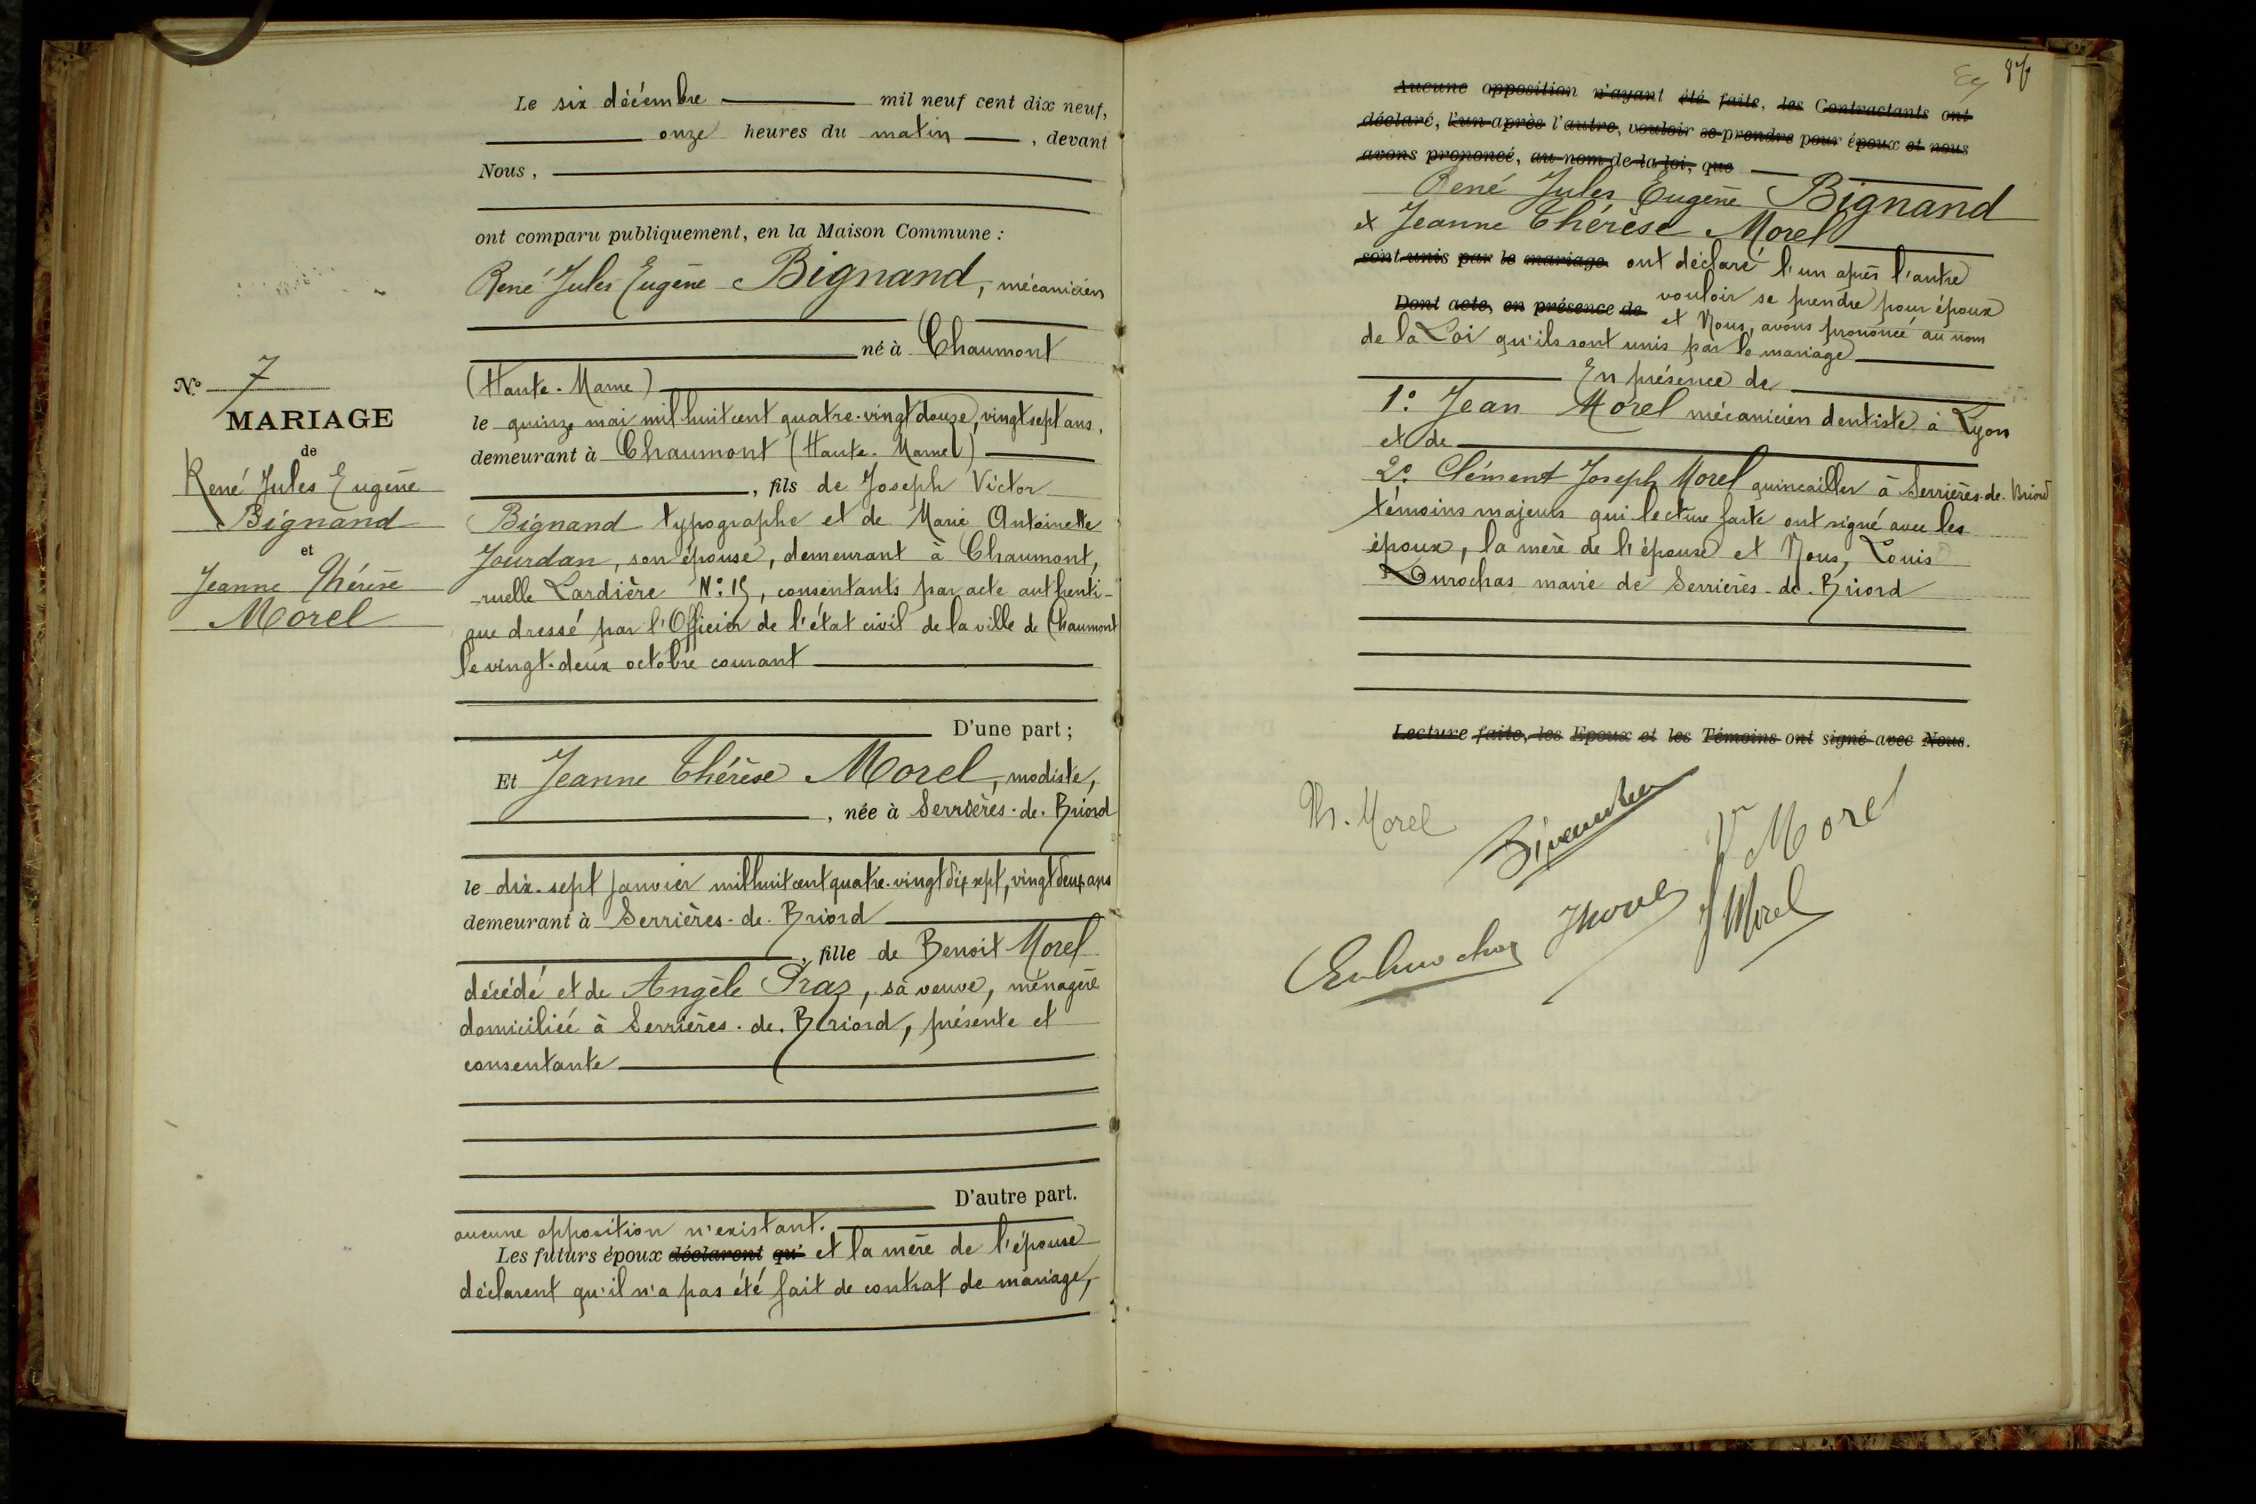 Le six décembre mil neuf cent dix neuf,
onze heures du matin , devant
Nous ,
ont comparu publiquement, en la Maison Commune :
René Jules Eugène Bignand, mécanicien
né à Chaumont
(Haute-Marne)
le quinze mai mil huit cent quatre-vingt douze, vingt sept ans,
demeurant à Chaumont (Haute-Marne)
, fils de Joseph Victor
Bignand typographe et de Marie Antoinette
Jourdan, son épouse, demeurant à Chaumont,
ruelle Lardière N°: 15, consentants par acte authenti-
que dressé par l'Officier de l'état civil de la ville de Chaumont
le vingt-deux octobre courant
D'une part ;
Et Jeanne Thérèse Morel, modiste,
, née à Serrières-de-Briord
le dix-sept janvier mil huit cent quatre-vingt dix sept, vingt deux ans
demeurant à Serrières-de-Briord
, fille de Benoit Morel
décédé et de Angèle Praz, sa veuve, ménagère
domiciliée à Serrières-de-Briord, présente et
consentante
D'autre part.
aucune opposition n'existant.
Les futurs époux déclarent qu' et la mère de l'épouse
déclarent qu'il n'a pas été fait de contrat de mariage,
N° 7
MARIAGE
de
René Jules Eugène
Bignand
et
Jeanne Thérèse
Morel
Aucune opposition n'ayant été faite, les Contractants ont
déclaré, l'un après l'autre, vouloir se prendre pour époux et nous
avons prononcé, au nom de la loi, que
René Jules Eugène Bignand
et Jeanne Thérèse Morel
sont unis par le mariage ont déclaré l'un après l'autre
vouloir se prendre pour époux
Dont acte, en présence de et Nous, avons prononcé au nom
de la Loi qu'ils sont unis par le mariage
En présence de
1° Jean Morel mécanicien dentiste à Lyon
et de
2° Clément Joseph Morel quincailler à Serrières-de-Briord
témoins majeurs qui lecture faite ont signé avec les
époux, la mère de l'épouse et Nous, Louis
Durochas maire de Serrières-de-Briord
Lecture faite, les Epoux et les Témoins ont signé avec Nous.
Th. Morel
Vve Morel
J Morel